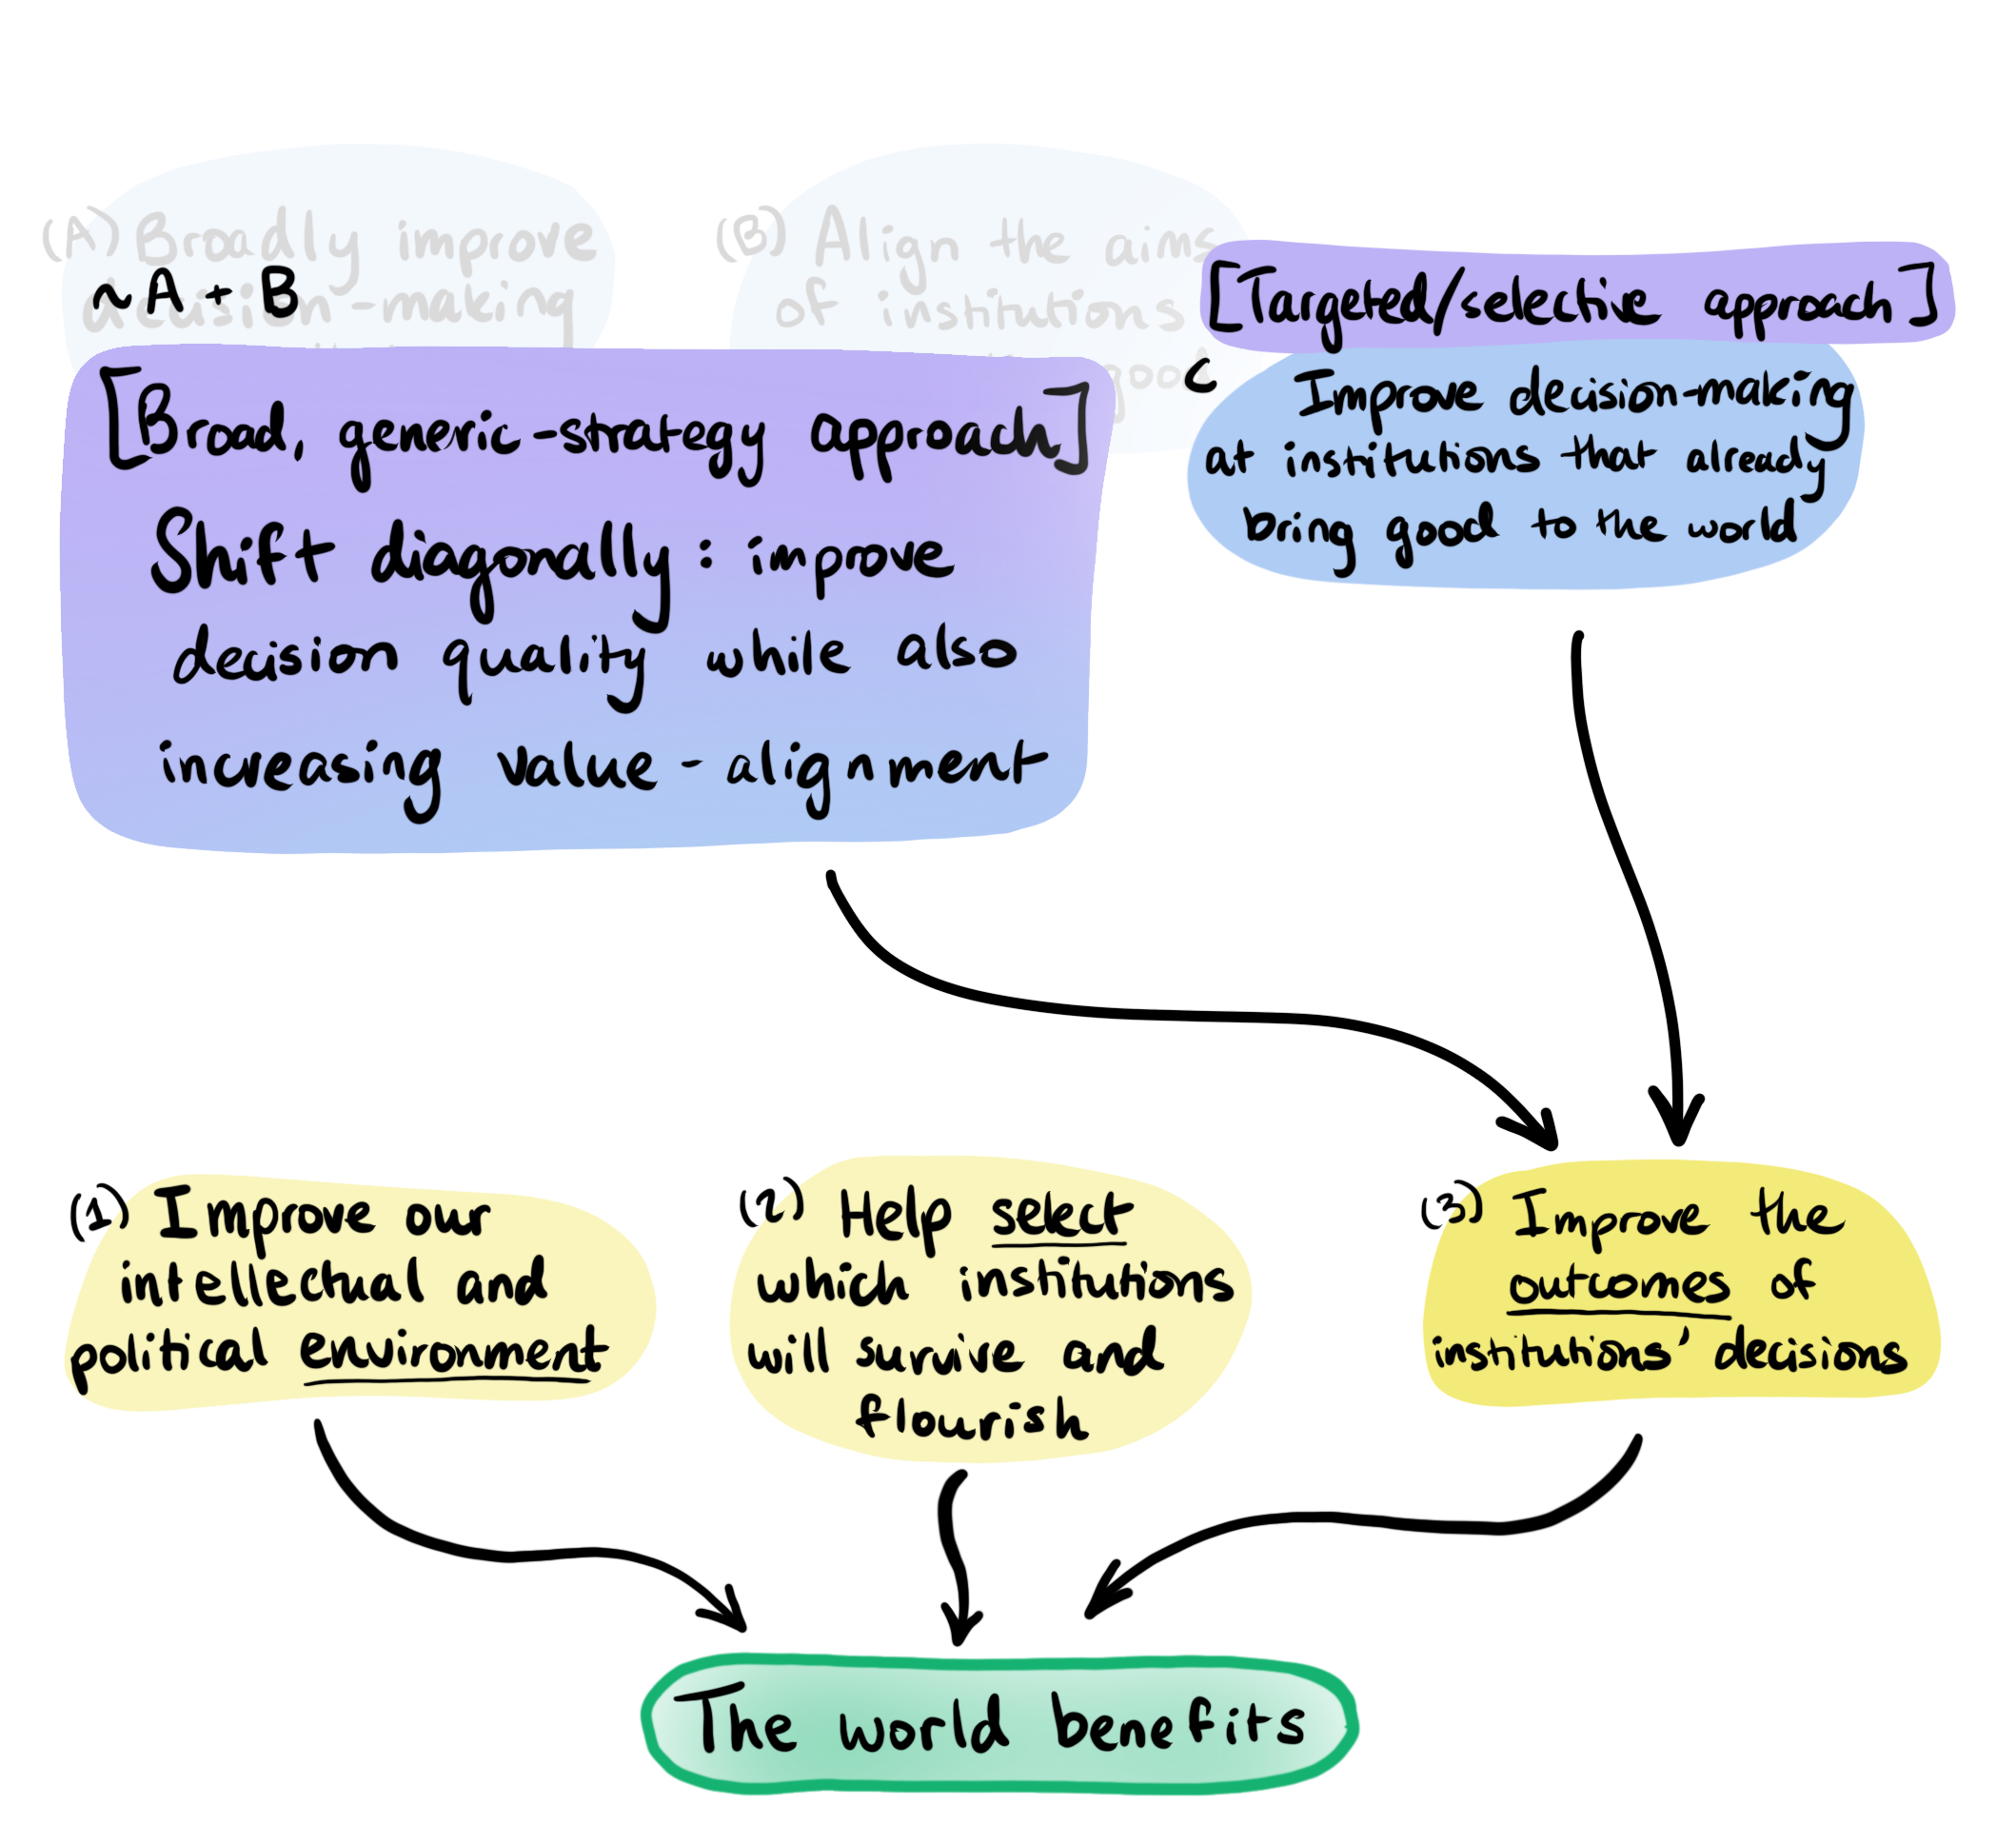 (A) Broadly improve
decision-making
~ A + B
(B) Align the aims
of institutions
good
[Broad, generic-strategy approach]
Shift diagonally: improve
decision quality while also
increasing value-alignment
[Targeted/selective approach]
C Improve decision-making
at institutions that already
bring good to the world
(1) Improve our
intellectual and
political environment
(2) Help select
which institutions
will survive and
flourish
(3) Improve the
outcomes of
institutions' decisions
The world benefits